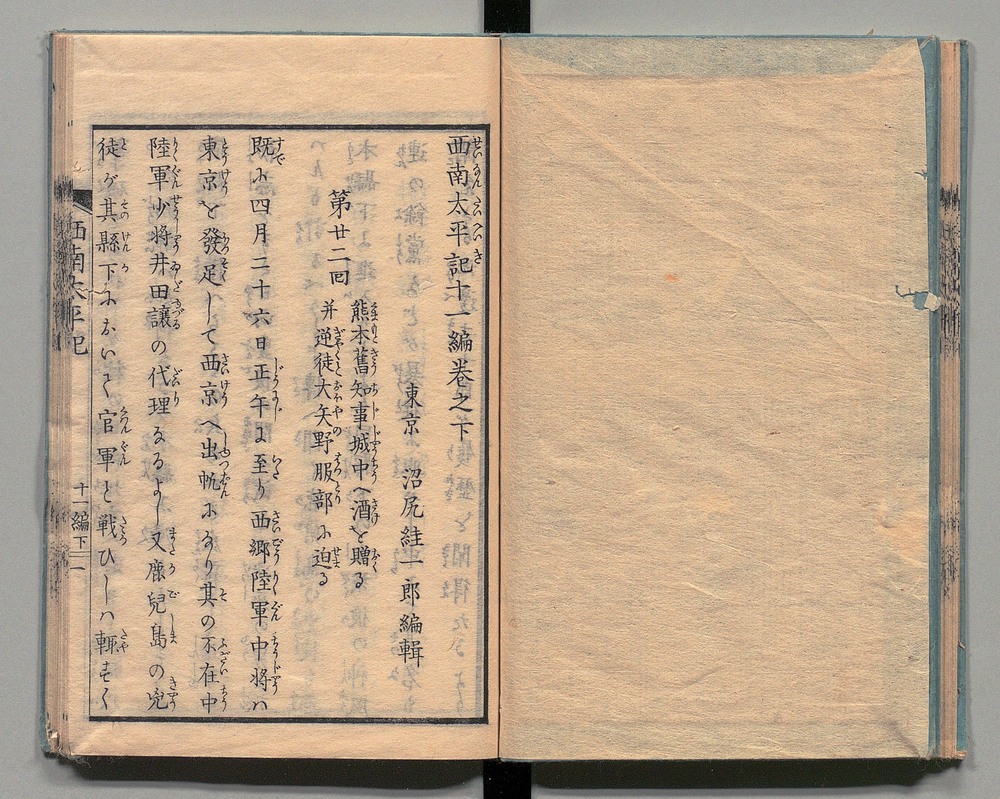 西南太平記十一編卷之下
東京 沼尻絓一郎編輯
第廿二囘
熊本舊知事城中へ酒を贈る
并逆徒大矢野服部に迫る
既に四月二十六日正午に至り西郷陸軍中将ハ
東京を發足して西京へ出帆になり其の不在中
陸軍少将井田讓の代理なるよし又鹿兒島の兇
徒が其縣下において官軍と戦ひしハ輙もすく
西南太平記
十一編下
一